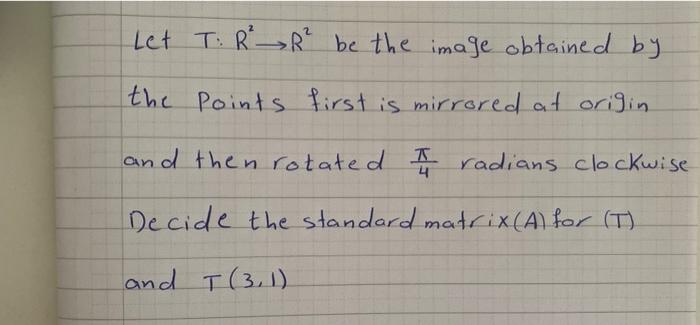 Let T: R²→R² be the image obtained by
the Points first is mirrored at origin
and then rotated π/4 radians clockwise
Decide the standard matrix(A) for (T)
and T(3,1)